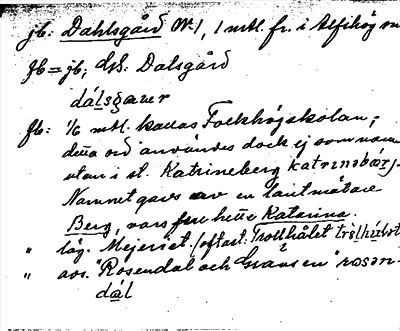 jb: Dahlsgård Nr 1, 1 mtl. fr. i Alfshög sn
fb = jb; Gsk. Dalsgård
dálsgaver
fb: 1/6 mtl. kallas Folkhögskolan;
detta ord användes dock ej som namn
utan i st. Katrineberg katrinəbärj.
Namnet gavs av en lantmätare
Berg, vars fru hette Katarina.
" läg. Mejeriet. (oftast: Trollhålet trólhúlət
" avs. "Rosendal och Gravsen" rosən-
dál